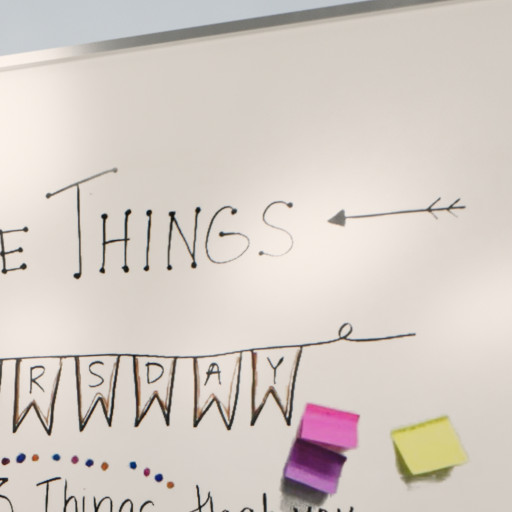 E THINGS
RSDAY
3 Things that you